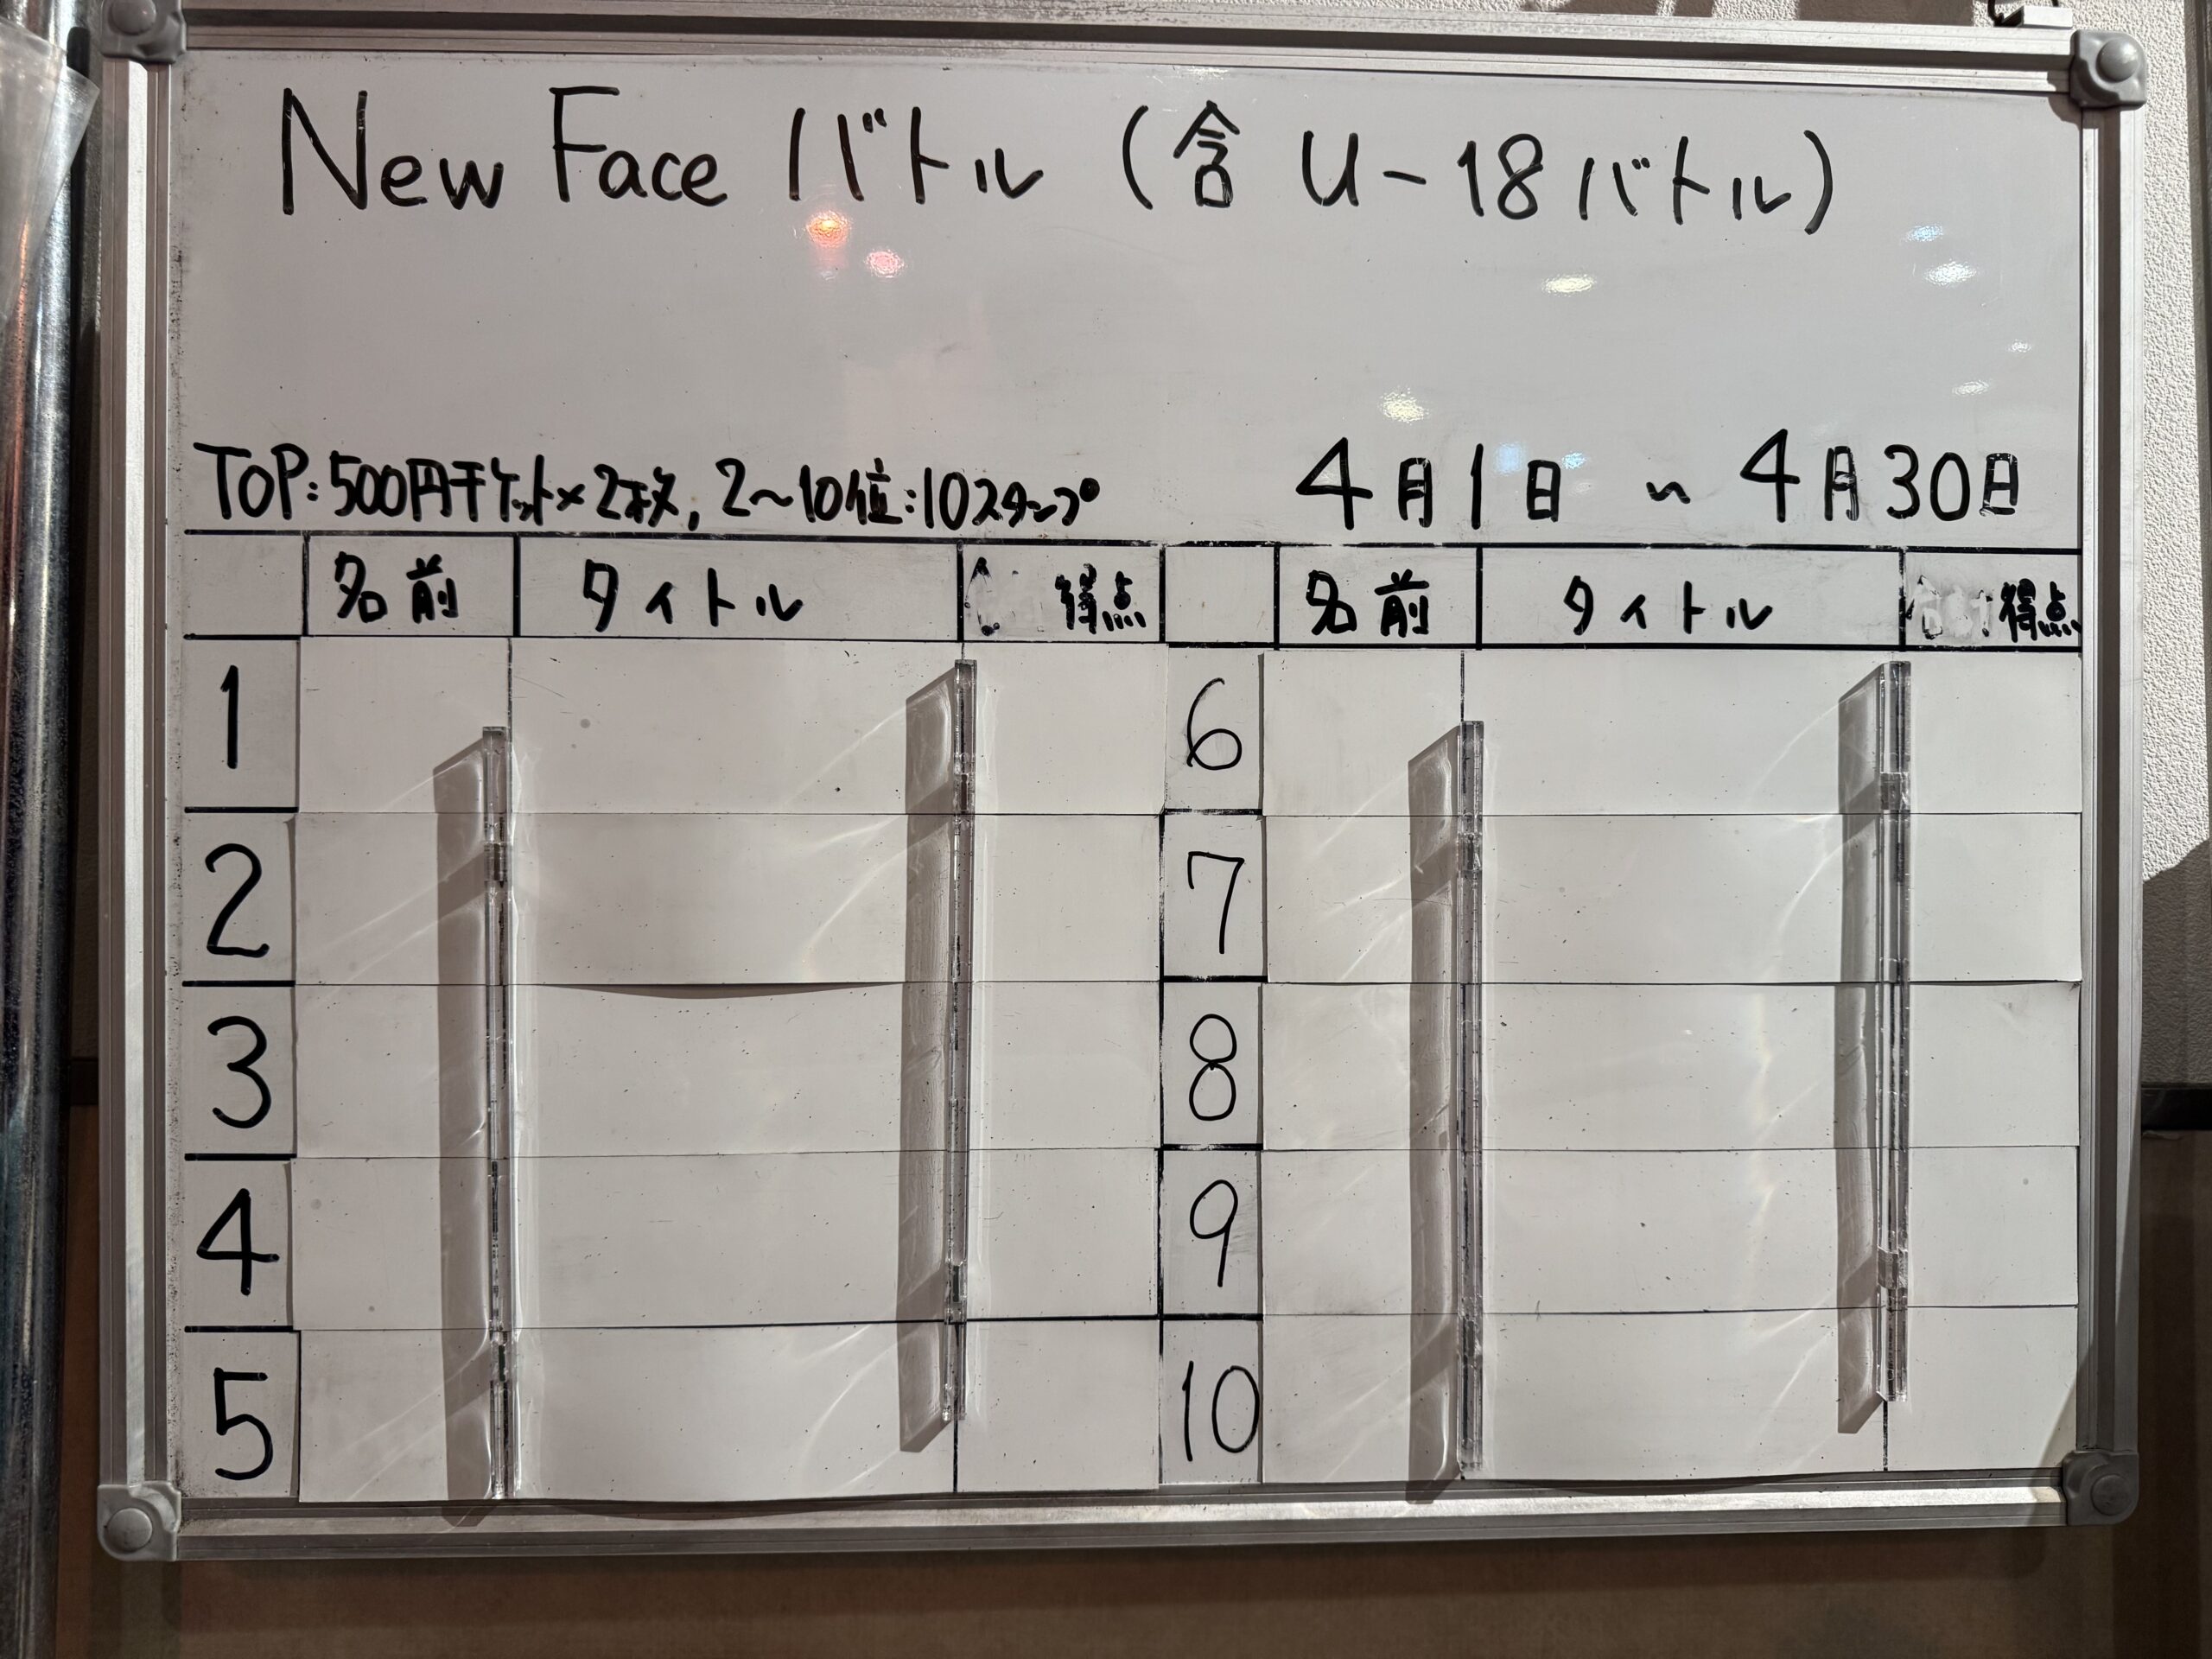 New Face バトル (含 U-18バトル)
TOP:500円チケット×2枚, 2〜10位:10スタンプ
4月1日 〜 4月30日
名前 タイトル 得点 名前 タイトル 得点
1 6
2 7
3 8
4 9
5 10